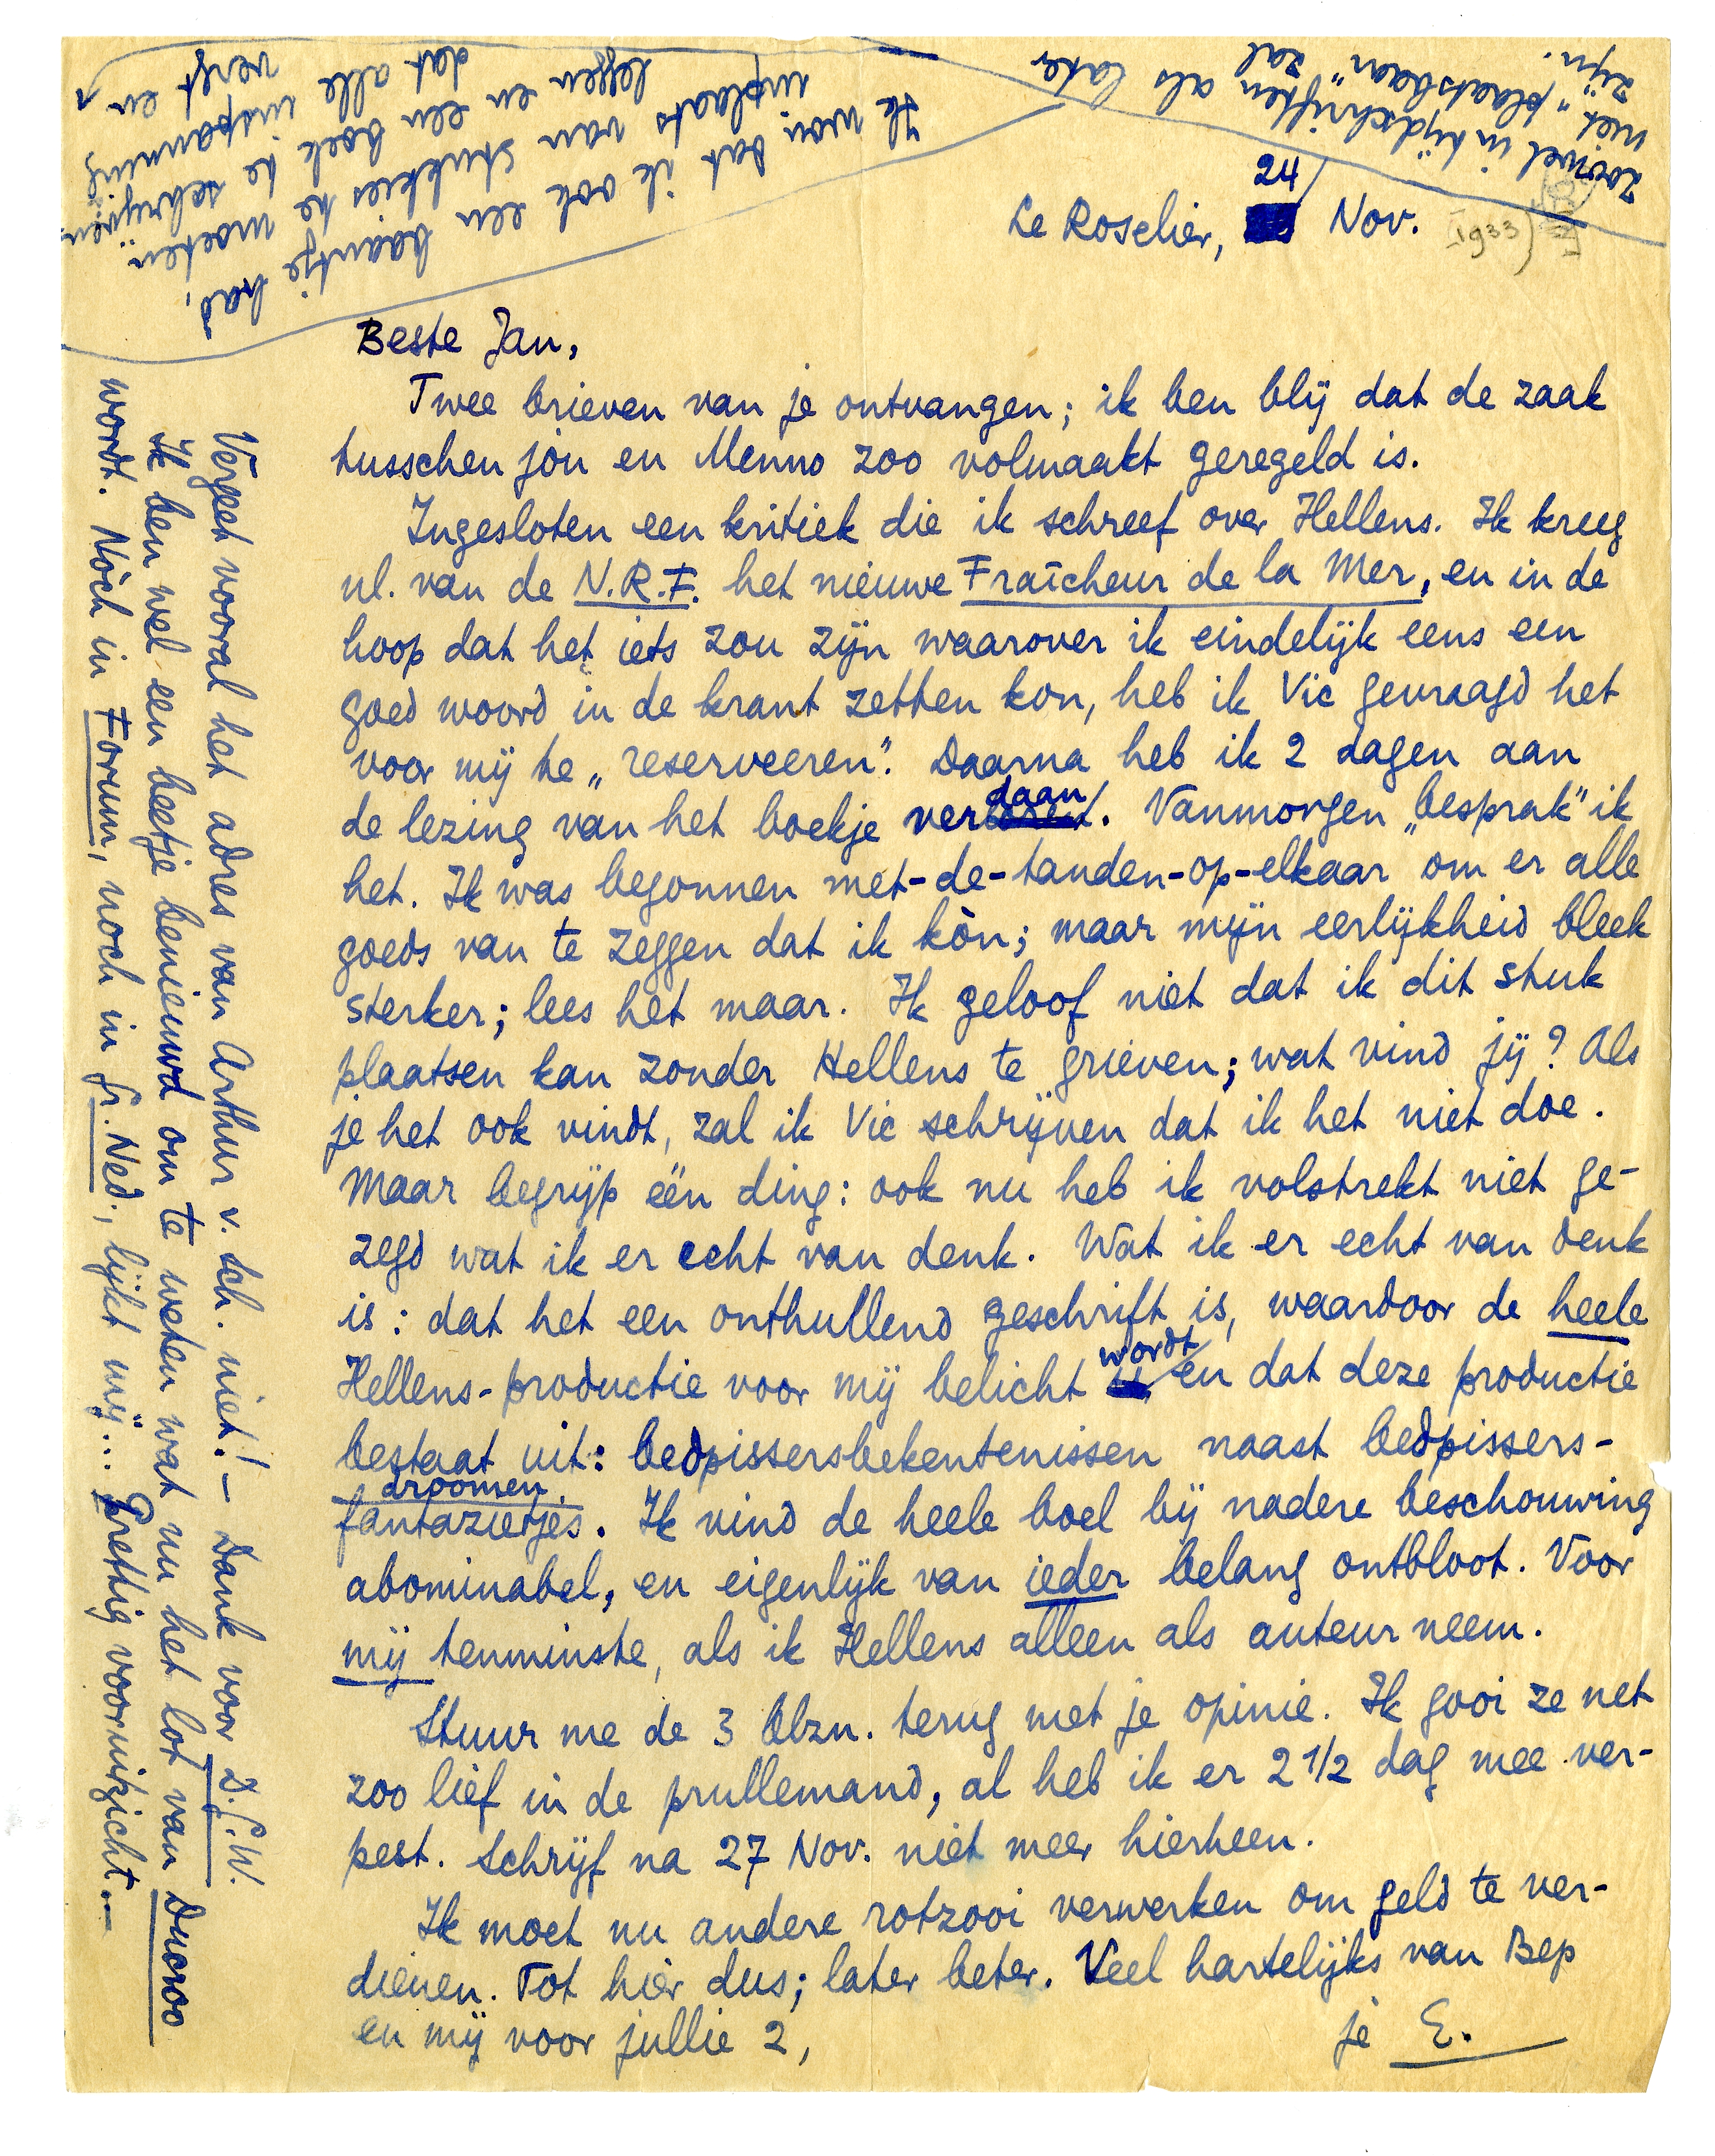 Le Roselier, 24 Nov.
1933)
Beste Jan,
Twee brieven van je ontvangen; ik ben blij dat de zaak
tusschen jòu en Menno zoo volmaakt geregeld is.
Ingesloten een kritiek die ik schreef over Hellens. Ik kreeg
nl. van de N.R.F. het nieuwe Fraîcheur de la Mer, en in de
hoop dat het iets zou zijn waarover ik eindelijk eens een
goed woord in de krant zetten kon, heb ik Vic gevraagd het
voor mij te „reserveeren". Daarna heb ik 2 dagen aan
de lezing van het boekje verdaan. Vanmorgen „besprak" ik
het. Ik was begonnen met-de-tanden-op-elkaar om er alle
goeds van te zeggen dat ik kòn; maar mijn eerlijkheid bleek
sterker; lees het maar. Ik geloof niet dat ik dit stuk
plaatsen kan zonder Hellens te grieven; wat vind jij? Als
je het ook vindt, zal ik Vic schrijven dat ik het niet doe.
Maar begrijp één ding: ook nu heb ik volstrekt niet ge-
zegd wat ik er echt van denk. Wat ik er echt van denk
is: dat het een onthullend geschrift is, waardoor de heele
Hellens-productie voor mij belicht wordt en dat deze productie
bestaat uit: bedpissersbekentenissen naast bedpissers-
droomen
fantazietjes. Ik vind de heele boel bij nadere beschouwing
abominabel, en eigenlijk van ieder belang ontbloot. Voor
mij tenminste, als ik Hellens alleen als auteur neem.
Stuur me de 3 blzn. terug met je opinie. Ik gooi ze net
zoo lief in de prullemand, al heb ik er 2 1/2 dag mee ver-
pest. Schrijf na 27 Nov. niet meer hierheen.
Ik moet nu andere rotzooi verwerken om geld te ver-
dienen. Tot hier dus; later beter. Veel hartelijks van Bep
en mij voor jullie 2,
je E.
Vergeet vooral het adres van Arthur v. Sch. niet! — Dank voor D.G.W.
Ik ben wel een beetje benieuwd om te weten wat nu het lot van Ducroo
wordt. Nòch in Forum, noch in Gr. Ned., lijkt mij... Prettig vooruitzicht...
Ik wou dat ik ook een baantje had,
inplaats van stukkies te moeten
leggen en een boek te schrijven
dat alle inspanning
vergt en
zoowel in tijdschriften als later
niet „plaatsbaar" zal
zijn.